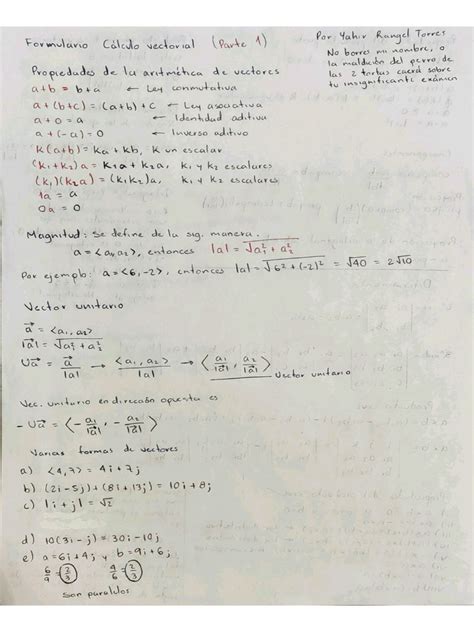 Formulario Cálculo vectorial (Parte 1)
Por Yahir Rangel Torres
No borres mi nombre, o
la maldición del perro de
las 2 tortas caerá sobre
tu insignificante exámen
Propiedades de la aritmética de vectores
a+b = b+a ← Ley conmutativa
a+(b+c) = (a+b)+c ← Ley asociativa
a+0 = a ← Identidad aditiva
a+(-a)=0 ← Inverso aditivo
K(a+b)=Ka+Kb, K un escalar
(K₁+K₂)a=K₁a+K₂a, K₁ y K₂ escalares
(K₁)(K₂a)=(K₁K₂)a, K₁ y K₂ escalares
1a = a
0a = 0
Magnitud: Se define de la sig. manera.
a=<a₁,a₂>, entonces |a|=√a₁²+a₂²
Por ejemplo: a=<6,-2>, entonces |a|=√6²+(-2)² = √40 = 2√10
Vector unitario
a⃗ = <a₁, a₂>
|a⃗| = √a₁²+a₂²
Ua⃗ = a⃗/|a| → <a₁, a₂>/|a| → <a₁/|a⃗|, a₂/|a⃗|> Vector unitario
Vec. unitario en dirección opuesta es
-Ua⃗ = <-a₁/|a⃗|, -a₂/|a⃗|>
Varias formas de vectores
a) <4,7> = 4i+7j
b) (2i-5j)+(8i+13j) = 10i+8j
c) |i+j| = √2
d) 10(3i-j) = 30i-10j
e) a=6i+4j y b=9i+6j
6/9 = 2/3 4/6 = 2/3
Son paralelos